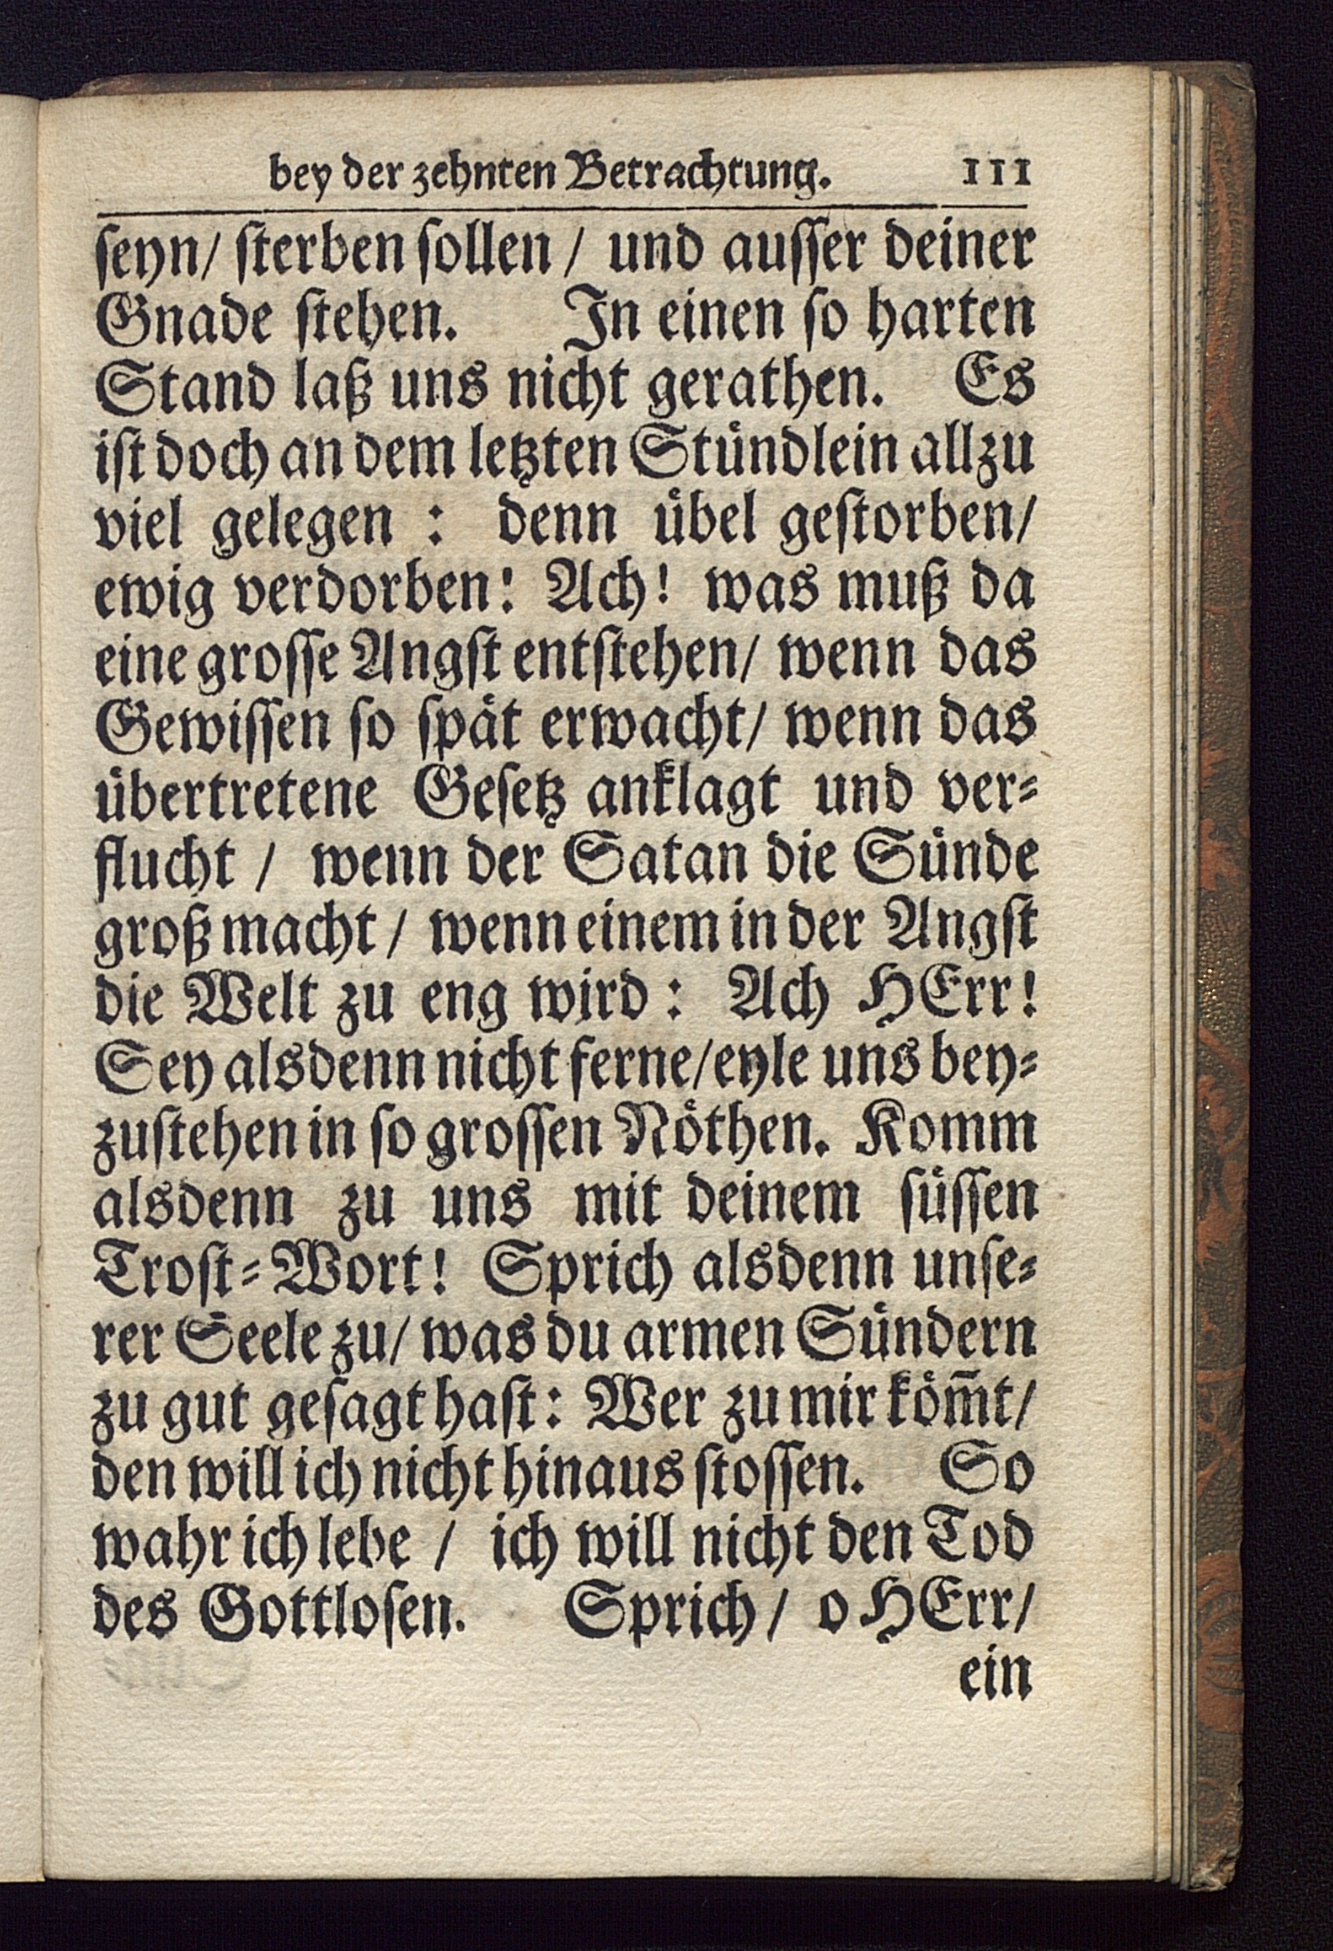 bey der zehnten Betrachtung. 111
ſeyn/ ſterben ſollen / und auſſer deiner
Gnade ſtehen. In einen ſo harten
Stand laß uns nicht gerathen. Es
iſt doch an dem letzten Stuͤndlein allzu
viel gelegen : denn uͤbel geſtorben/
ewig verdorben! Ach! was muß da
eine groſſe Angſt entſtehen/ wenn das
Gewiſſen ſo ſpaͤt erwacht/ wenn das
uͤbertretene Geſetz anklagt und ver⸗
flucht / wenn der Satan die Suͤnde
groß macht / wenn einem in der Angſt
die Welt zu eng wird : Ach HErr!
Sey alsdenn nicht ferne/eyle uns bey⸗
zuſtehen in ſo groſſen Noͤthen. Komm
alsdenn zu uns mit deinem ſuͤſſen
Troſt⸗Wort! Sprich alsdenn unſe⸗
rer Seele zu/ was du armen Suͤndern
zu gut geſagt haſt: Wer zu mir koͤm̃t/
den will ich nicht hinaus ſtoſſen. So
wahr ich lebe / ich will nicht den Tod
des Gottloſen. Sprich/ o HErr/
ein